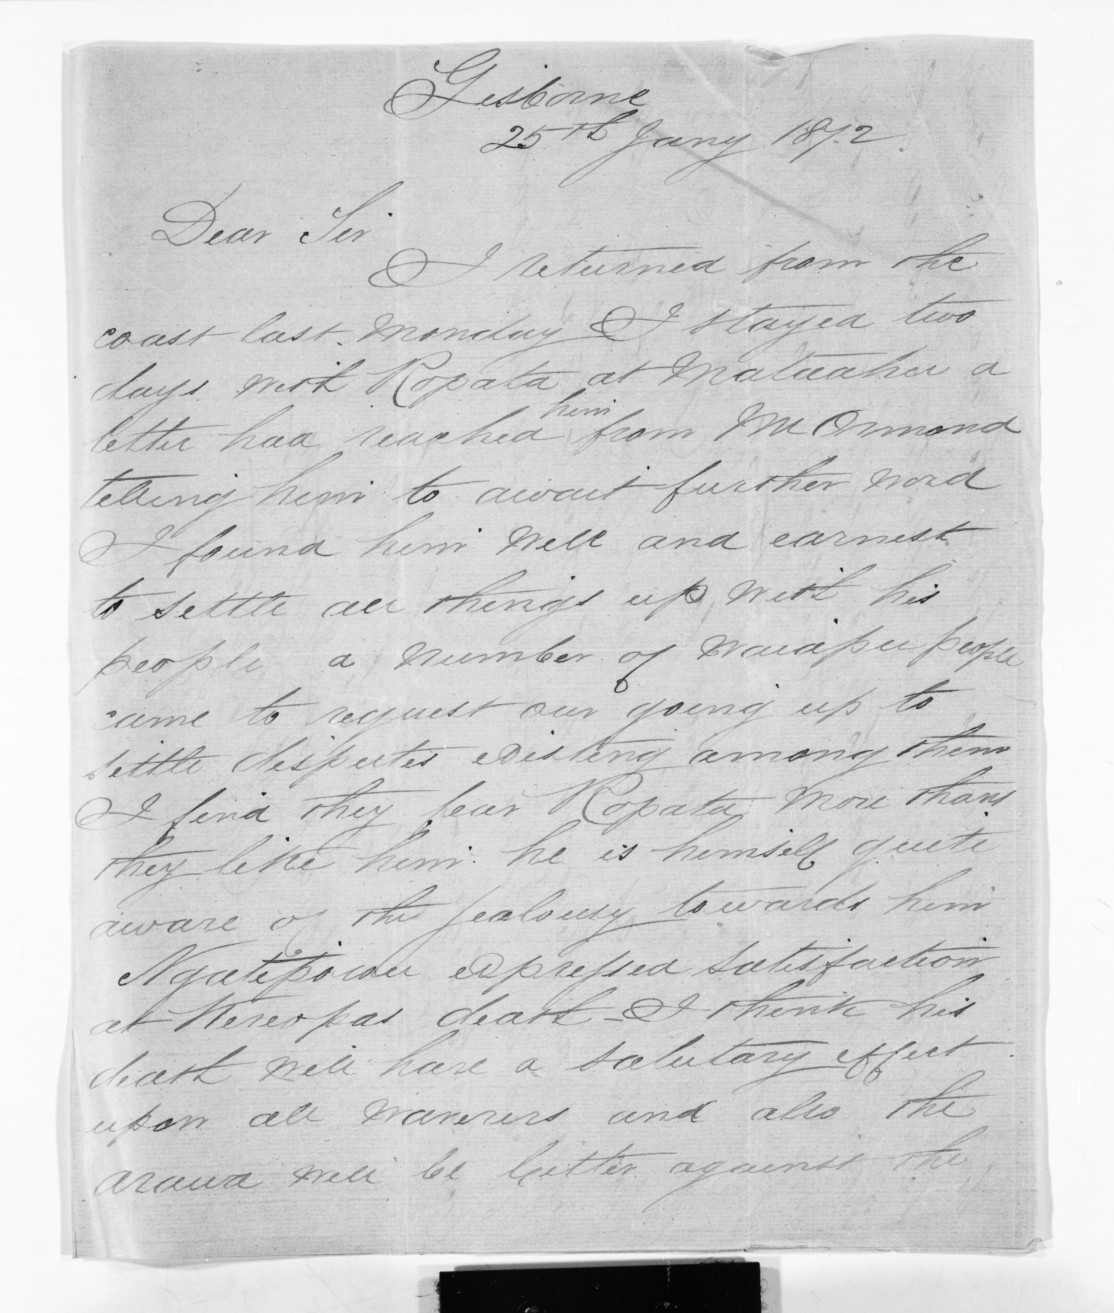 Gisborne
25th Jany 1872.
Dear Sir
I returned from the
coast last Monday I stayed two
days with Ropata at Mataahu a
letter had reached him from Mr Ormond
telling him to await further word
I found him well and earnest
to settle all things up with his
people, a number of Waiapu people
came to request our going up to
settle disputes existing among them
I find they fear Ropata more than
they like him. he is himself quite
aware of the jealousy towards him
Ngatiporou expressed satisfaction
at Kereopas death - I think his
death will have a salutary effect
upon all waverers and also the
arawa will be bitter against the